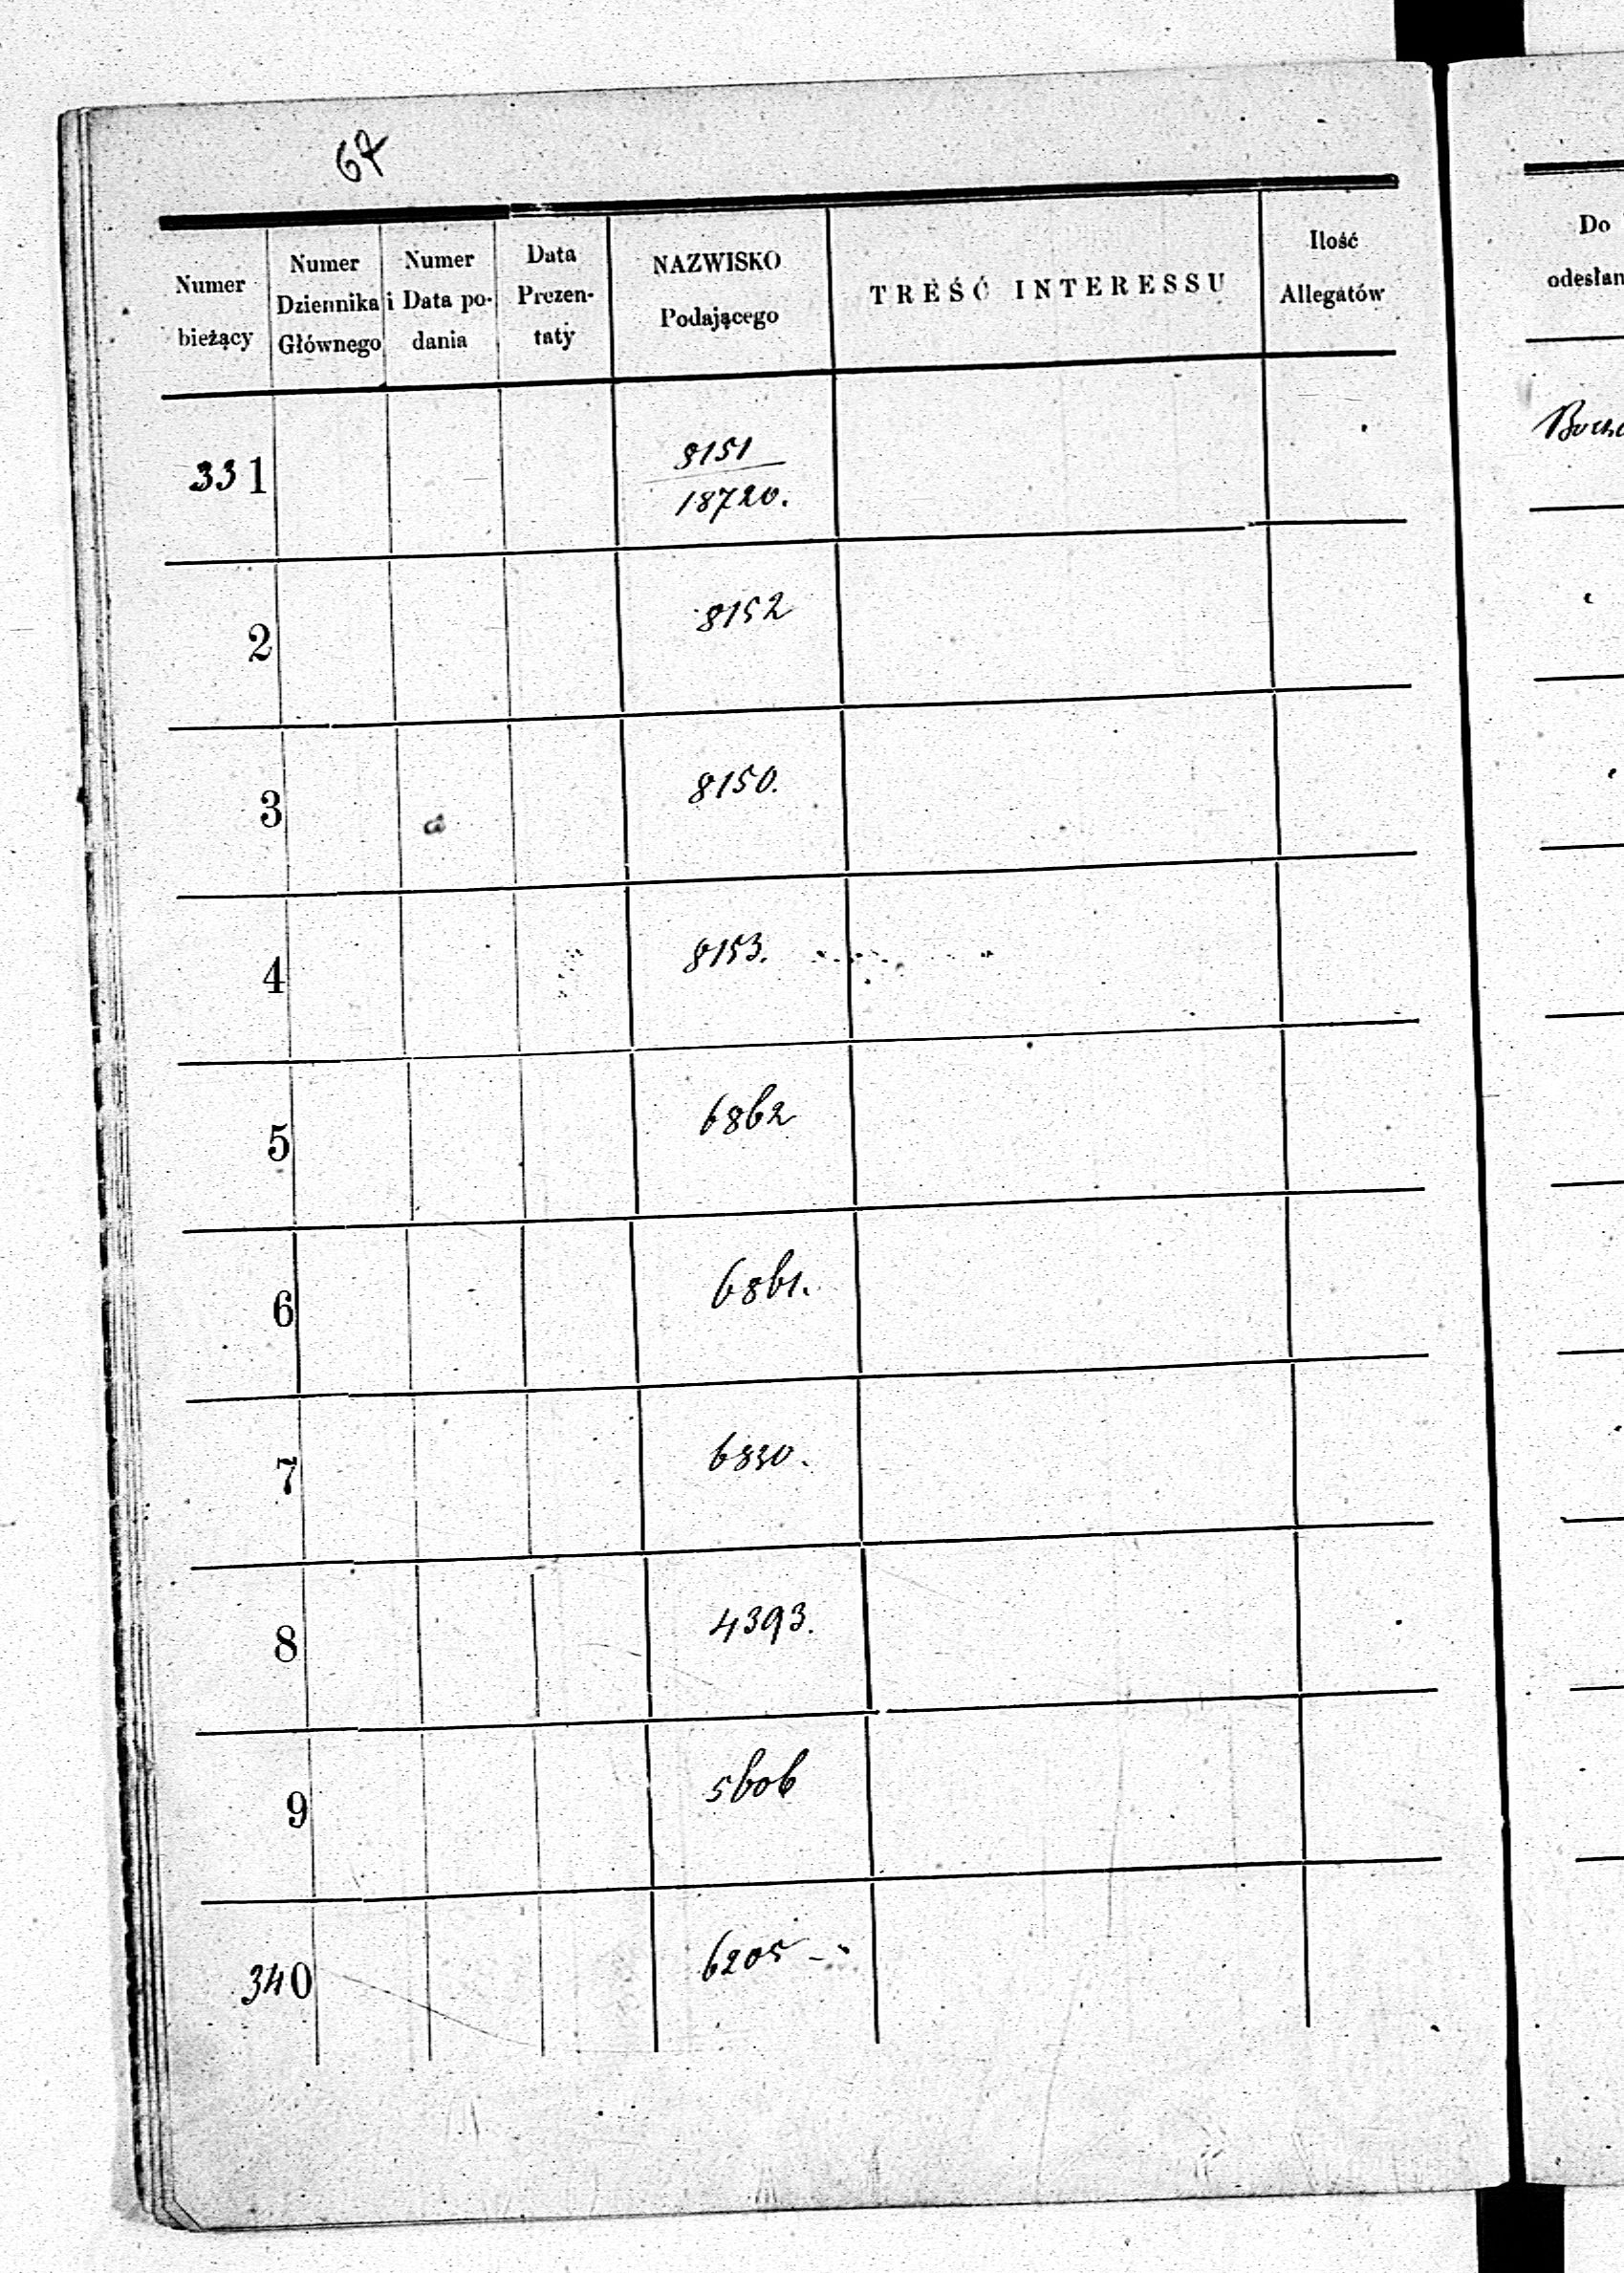 67
Numer bieżący
Numer Dziennika Głównego
Numer i Data po- dania
Data Prezen- taty
NAZWISKO Podającego
TREŚĆ INTERESSU
Ilość Allegatów
Do odesłan
331
8151
18720.
2
8152
3
8150.
4
8153.
5
6862
6
6861.
7
6830.
8
4393.
9
5606
340
6205